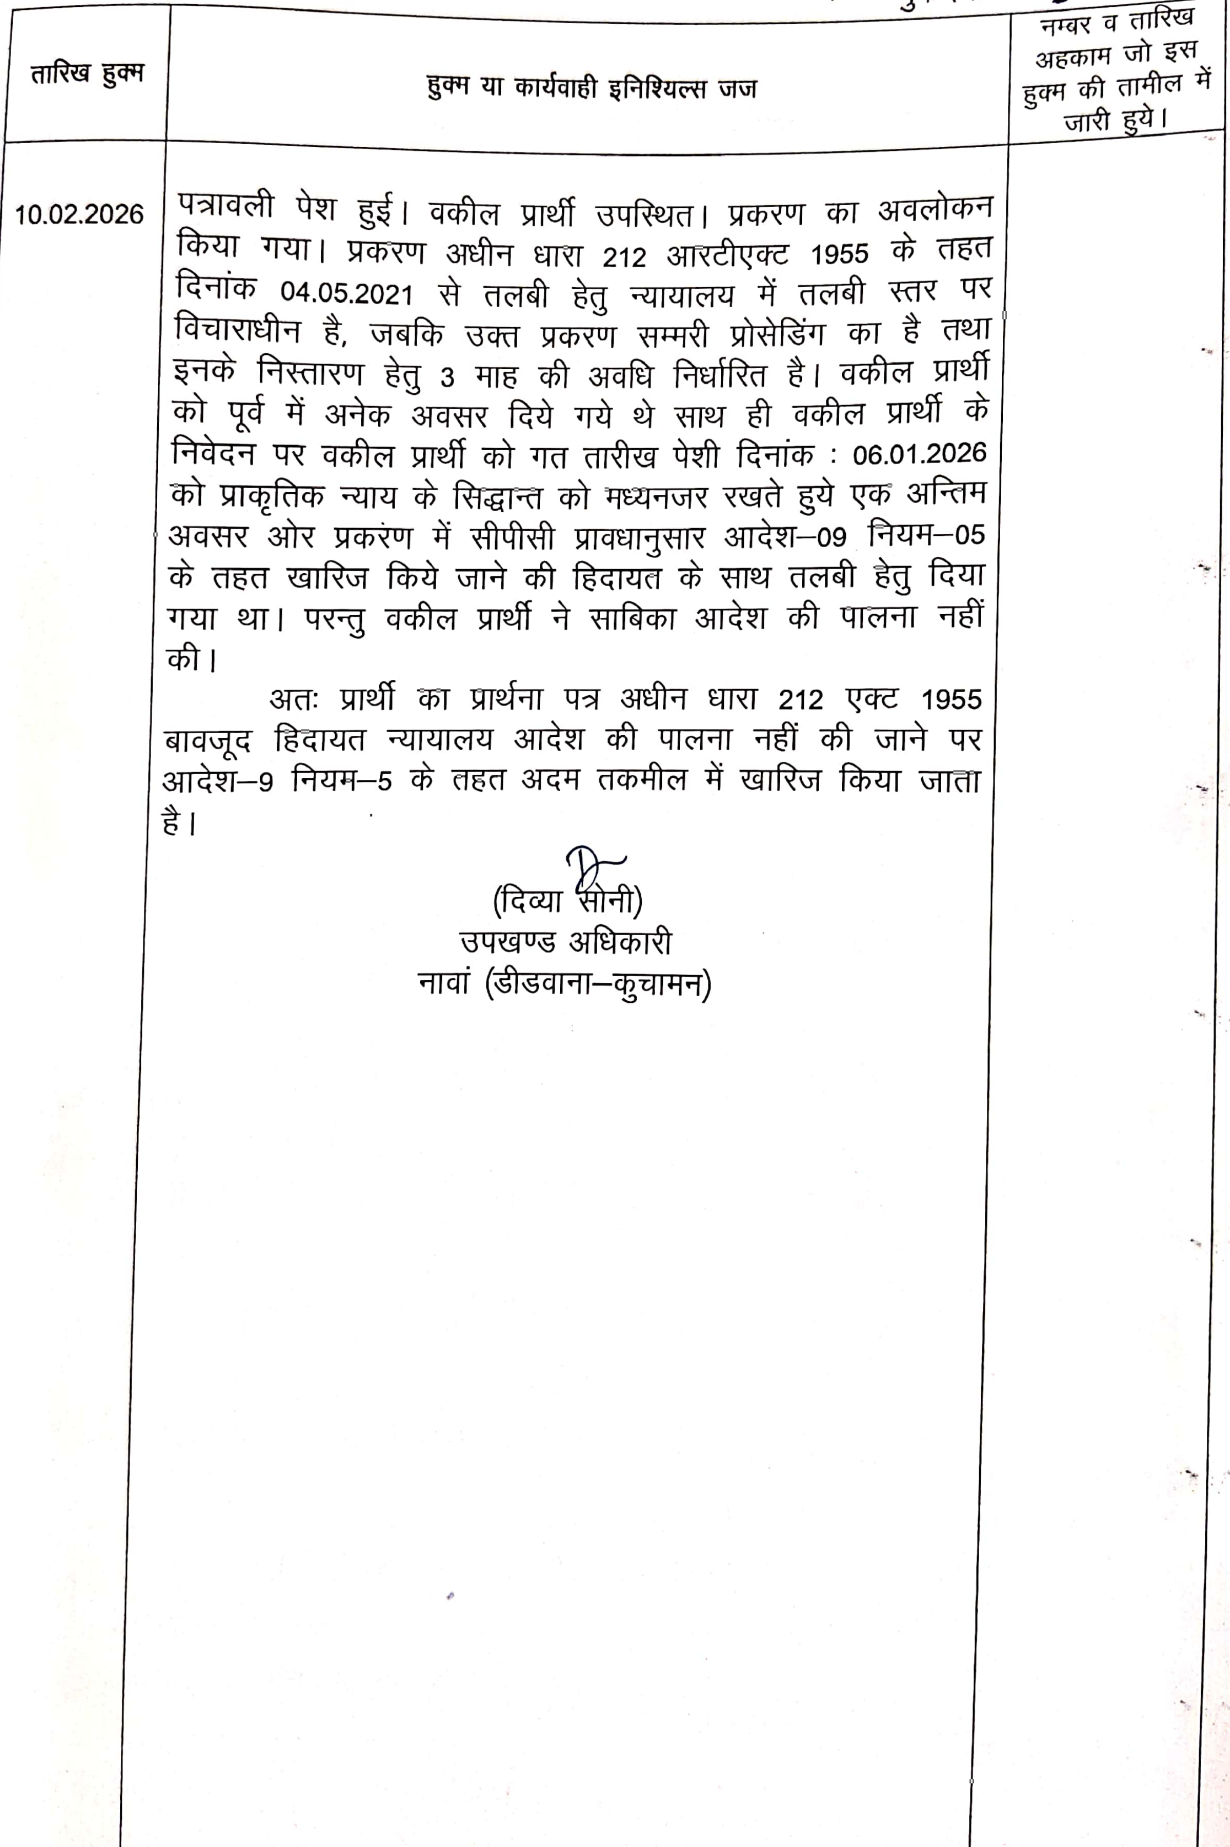 तारिख हुक्म
हुक्म या कार्यवाही इनिश्यिल्स जज
नम्बर व तारिख
अहकाम जो इस
हुक्म की तामील में
जारी हुये।
10.02.2026
पत्रावली पेश हुई। वकील प्रार्थी उपस्थित। प्रकरण का अवलोकन
किया गया। प्रकरण अधीन धारा 212 आरटीएक्ट 1955 के तहत
दिनांक 04.05.2021 से तलबी हेतु न्यायालय में तलबी स्तर पर
विचाराधीन है, जबकि उक्त प्रकरण सम्मरी प्रोसेडिंग का है तथा
इनके निस्तारण हेतु 3 माह की अवधि निर्धारित है। वकील प्रार्थी
को पूर्व में अनेक अवसर दिये गये थे साथ ही वकील प्रार्थी के
निवेदन पर वकील प्रार्थी को गत तारीख पेशी दिनांक : 06.01.2026
को प्राकृतिक न्याय के सिद्धान्त को मध्यनजर रखते हुये एक अन्तिम
अवसर ओर प्रकरंण में सीपीसी प्रावधानुसार आदेश–09 नियम–05
के तहत खारिज किये जाने की हिदायत के साथ तलबी हेतु दिया
गया था। परन्तु वकील प्रार्थी ने साबिका आदेश की पालना नहीं
की।
अतः प्रार्थी का प्रार्थना पत्र अधीन धारा 212 एक्ट 1955
बावजूद हिदायत न्यायालय आदेश की पालना नहीं की जाने पर
आदेश–9 नियम–5 के तहत अदम तकमील में खारिज किया जाता
है।
(दिव्या सोनी)
उपखण्ड अधिकारी
नावां (डीडवाना–कुचामन)